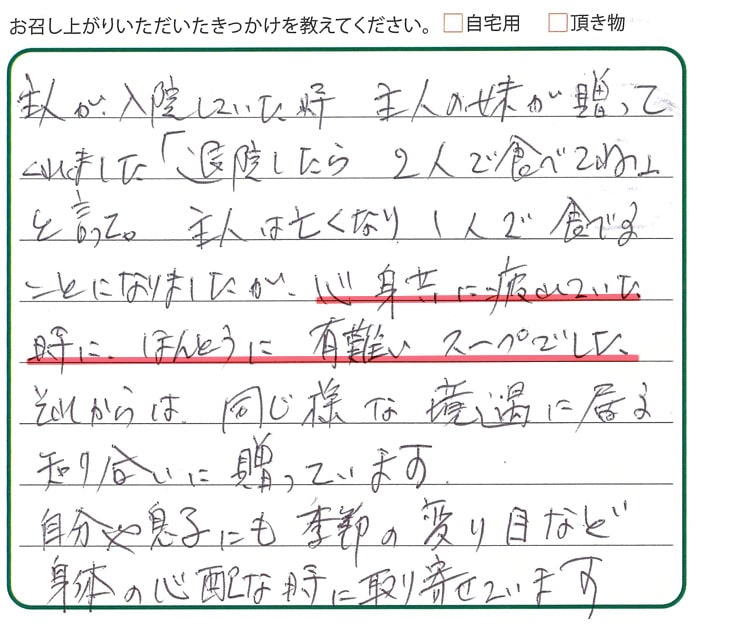 お召し上がりいただいたきっかけを教えてください。 □自宅用 □頂き物
主人が、入院していた時 主人の妹が贈って
くれました「退院したら 2人で食べてね」
と言って。 主人は亡くなり 1人で 食べる
ことになりましたが、心身共に疲れていた
時に、ほんとうに 有難い スープでした。
それからは、同じ様な境遇に居る
知り合いに贈っています。
自分や息子にも季節の変り目など
身体の心配な時に取り寄せています